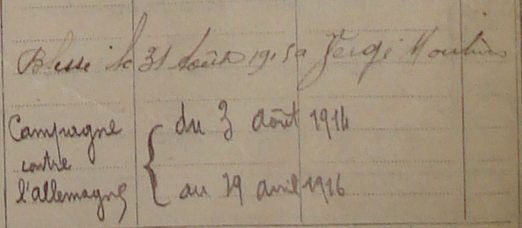 Blessé le 31 Août 1915 à Moulin
Campagne
contre
l'allemagne
du 3 août 1914
au 19 avril 1916